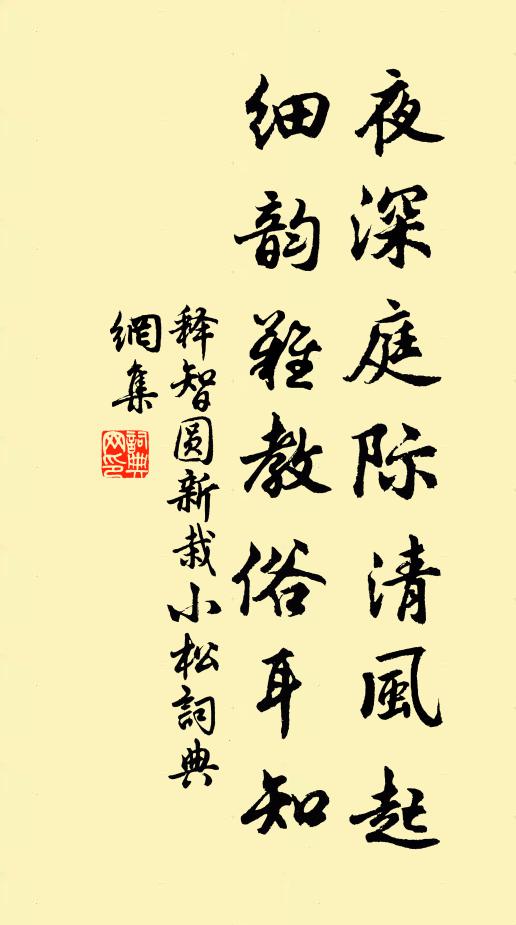 夜深庭际清風起
细韵難教俗耳知
释智圆新栽小松詞典
網集
詞典
网印